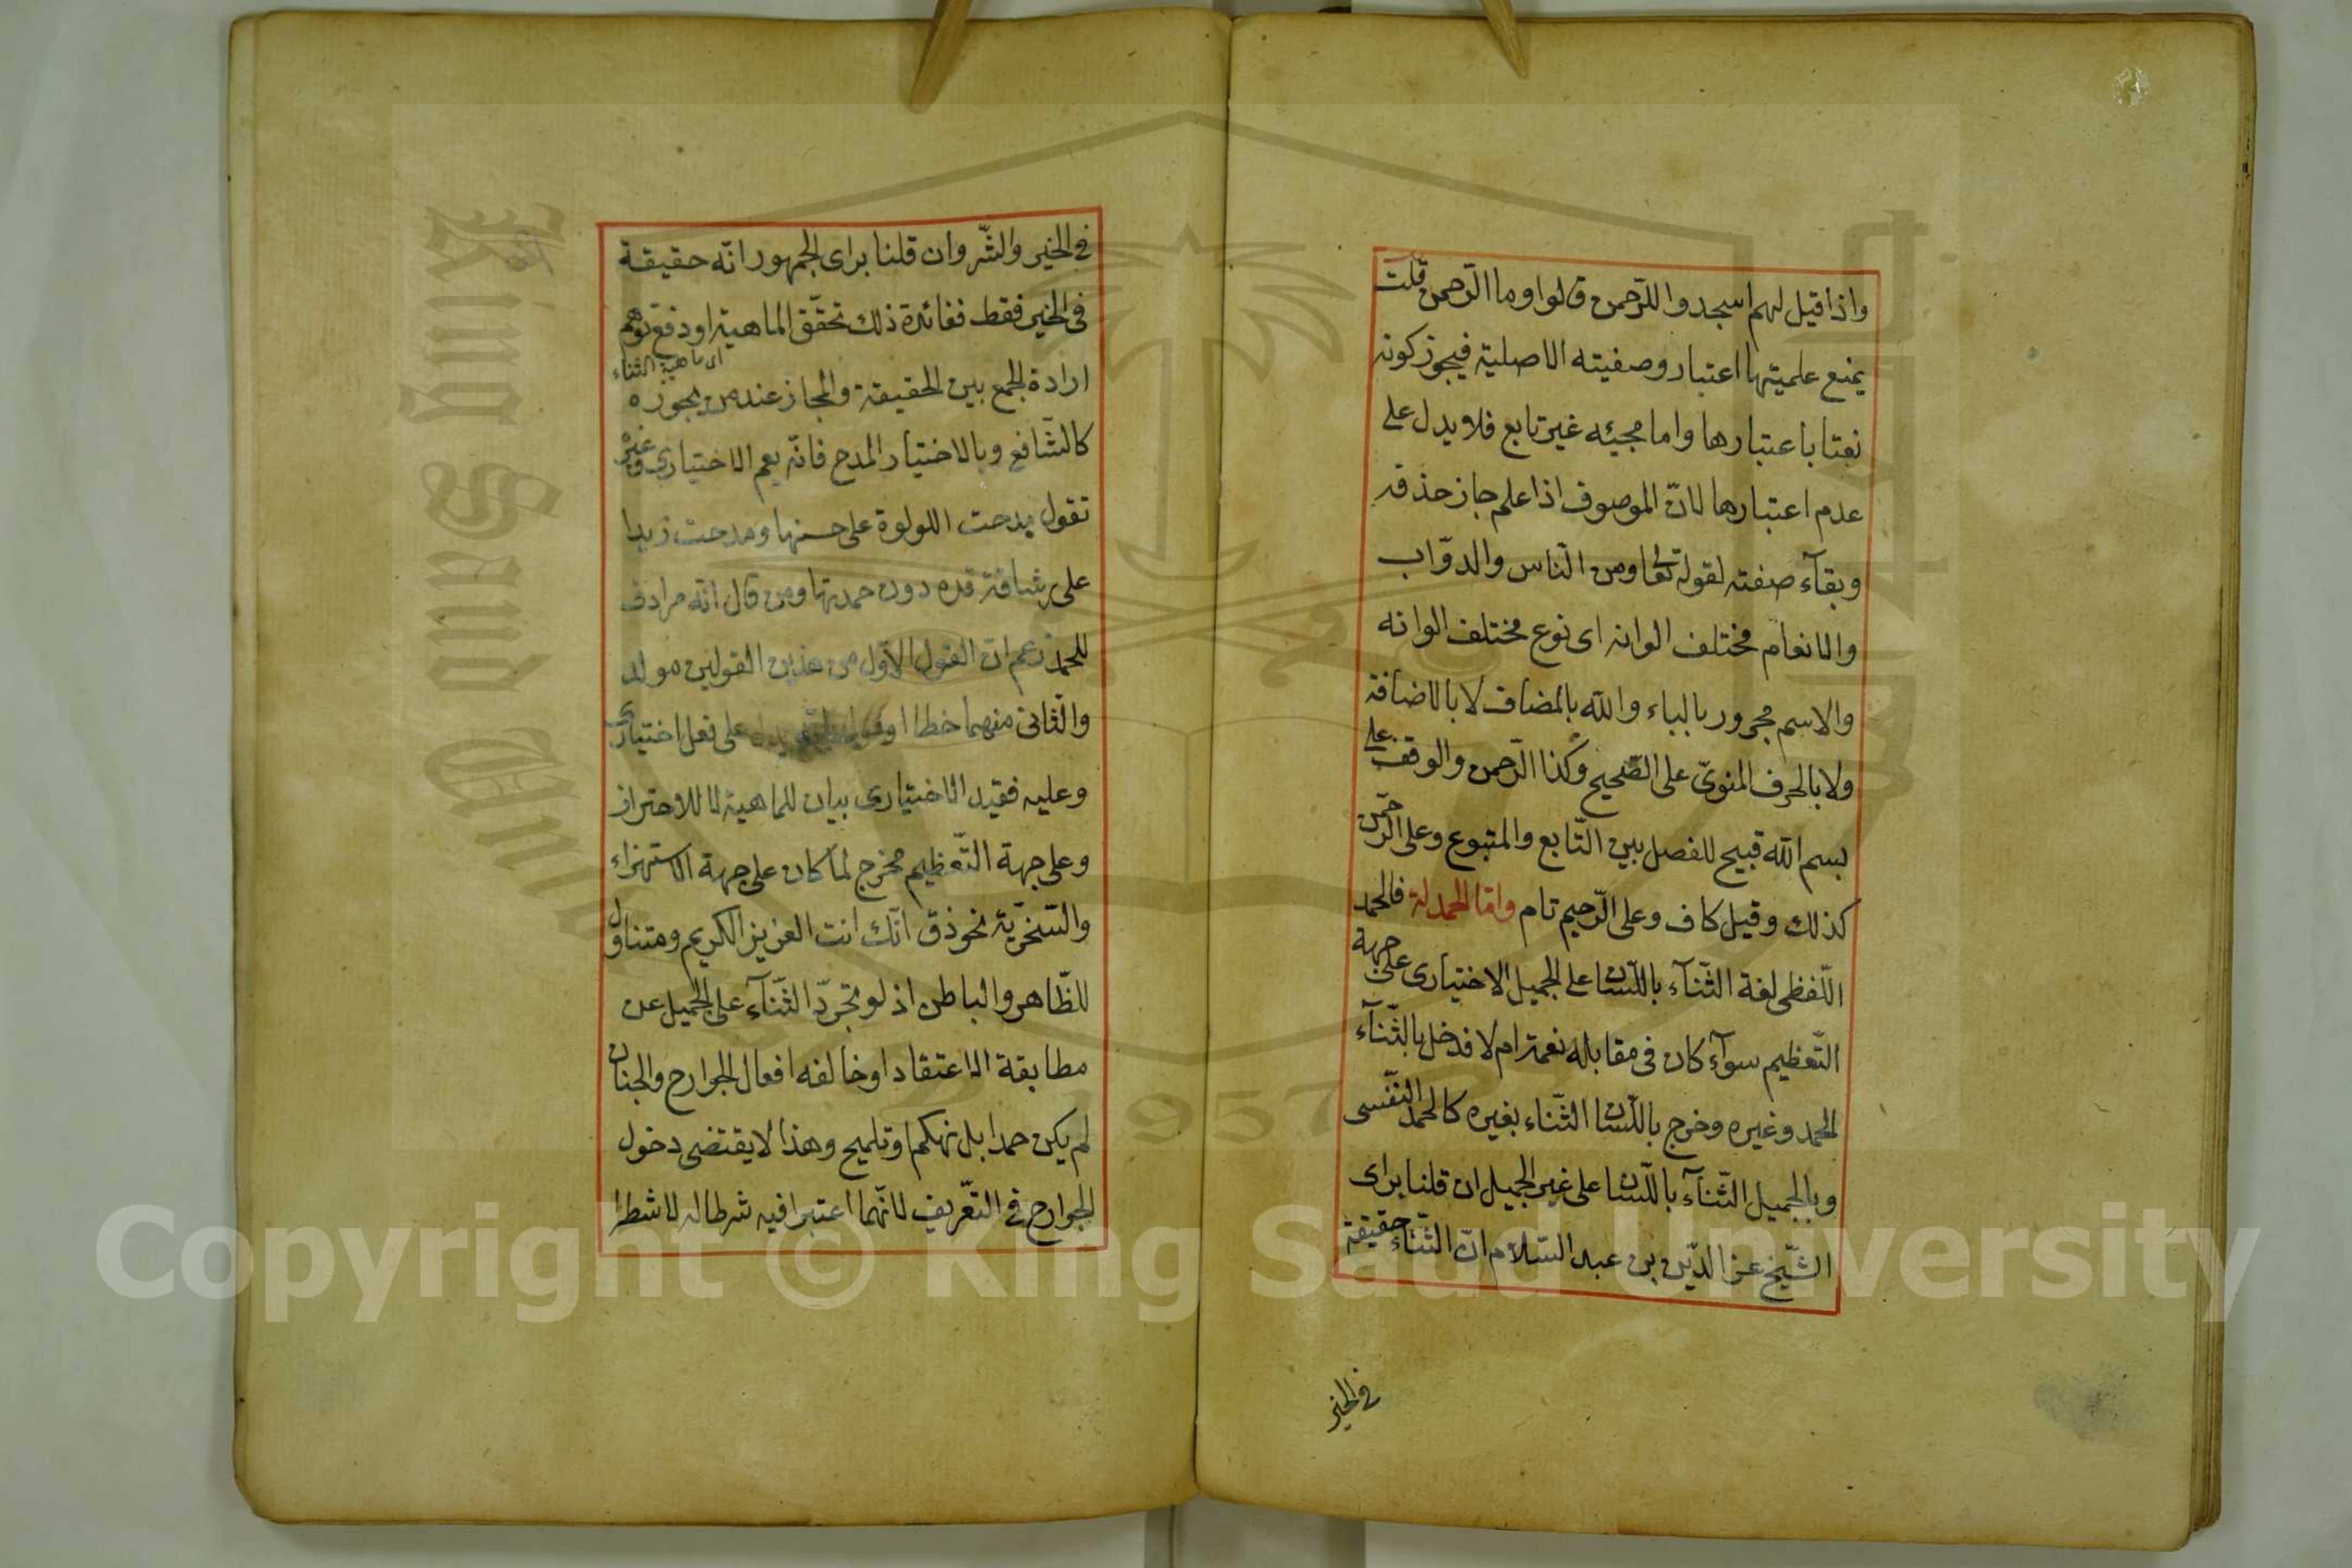 واذا قيل لهم اسجدوا للرّحمن قالوا وما الرّحمن قلت
يمنع علميتها اعتبار وصفيته الاصلية فيجوز كونه
نعتا باعتبارها واما مجيئه غير تابع فلا يدل على
عدم اعتبارها لانّ الموصوف اذا علم جاز حذفه
وبقآء صفته لقوله تعا ومن النّاس والدوّاب
والانعام مختلف الوانه اى نوع مختلف الوانه
والاسم مجرور بالباء والله بالمضاف لا بالاضافة
ولا بالحرف المنوىّ على الصّحيح وكذا الرّحمن والوقف على
بسم الله قبيح للفصل بين التّابع والمتبوع وعلى الرّحمن
كذلك وقيل كاف وعلى الرّحيم تام وامّا الحمدلة فالحمد
اللّفظى لغة الثّنآء باللّسان على الجميل الاختيارى على جهة
التّعظيم سوآء كان فى مقابلة نعمة ام لا فدخل بالثّنآء
الحمد وغيره وخرج باللّسان الثّناء بغيره كالحمد النّفسى
وبالجميل الثّنآء باللّسان على غير الجميل ان قلنا براى
الشّيخ عز الدّين بن عبد السّلام انّ الثّناء حقيقة
فى الخير
فى الخير والشّر وان قلنا براى الجمهور انّه حقيقة
فى الخير فقط ففائدة ذلك تحقّق الماهية او دفع توهم
اى ماهية الثناء
ارادة الجمع بين الحقيقة والمجاز عند من يجوزه
كالشّافعى وبالاختيار المدح فانّه يعم الاختيارى وغيره
تقول مدحت اللولوة على حسنها ومدحت زيدا
على رشاقة قده دون حمدتها ومن قال انّه مرادف
للحمد زعم ان القول الاوّل من هذين القولين مولد
والثّانى منهما خطاا يدل على فعل اختيارى
وعليه فقيد الاختيارى بيان للماهية لا للاحتراز
وعلى جهة التّعظيم مخرج لما كان على جهة الاستهزاء
والسّخريّة نحو ذق انّك انت العزيز الكريم ومتناول
للظّاهر والباطن اذ لو تجرّد الثّنآء على الجميل عن
مطابقة الاعتقاد او خالفه افعال الجوارح والجنان
لم يكن حمدا بل تهكم او تلميح وهذا لا يقتضى دخول
الجوارح فى التّعريف لانّهما اعتبرا فيه شرطا له لا شطرا
Copyright © King Saud University
1957